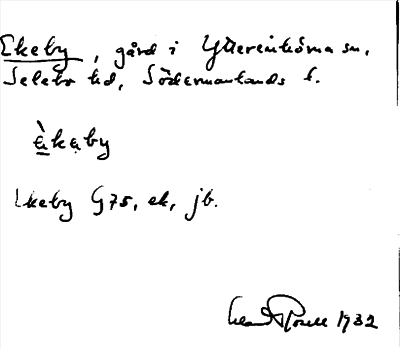 Ekeby, gård i Ytterenhörna sn,
Selebo hd, Södermanlands l.
àkaby
Ekeby G75, ek, jb.
1932